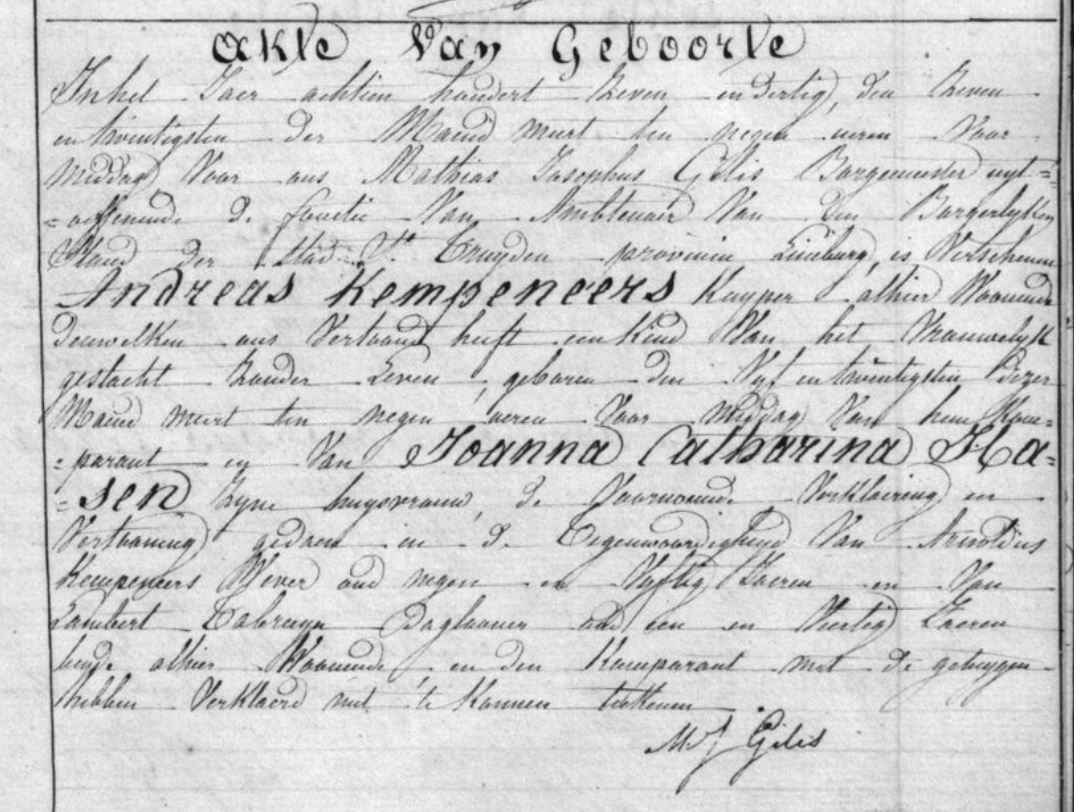 Akte Van Geboorte
In het Jaer achtien hundert Zeven en dertig, den Zeven
en twentigsten der Maend meert ten negen ueren Voor
middag Voor ons Mathias Josephus Gilis Borgemeester uyt=
=oeffenende de functie Van Ambtenair Van den Borgerlyken
Stand der Stad St Truyden provincie Limburg, is Verschenen
Andreas Kempeneers Kuyper alhier Woonende
denwelken ons Vertoond heeft een Kind Van het Vrouwelyk
geslacht Zonder Leven, geboren den Vyf en twentigsten dezer
Maend meert ten negen ueren Voor middag Van hem Kom=
=parant en Van Joanna Catharina Ha=
=sen Zyne huysvrouw, de Voornoemde Verklaering en
Vertooning gedaen in de Tegenwoordigheyd Van Arnoldus
Kempeneers Wever oud negen en Vyftig Jaeren en Van
Lambert Daglooner oud een en Viertig Jaeren
beyde alhier Woonende, en den Komparant met de getuygen
hebben Verklaerd niet te Konnen teekenen
M J Gilis